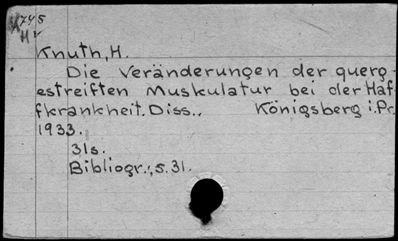 4745
Hv
Knuth, H.
Die Veränderungen der querg-
estreiften Muskulatur bei der Haf-
fkrankheit. Diss., Königsberg i. Pr.
1933.
31s.
Bibliogr.:, s. 31.